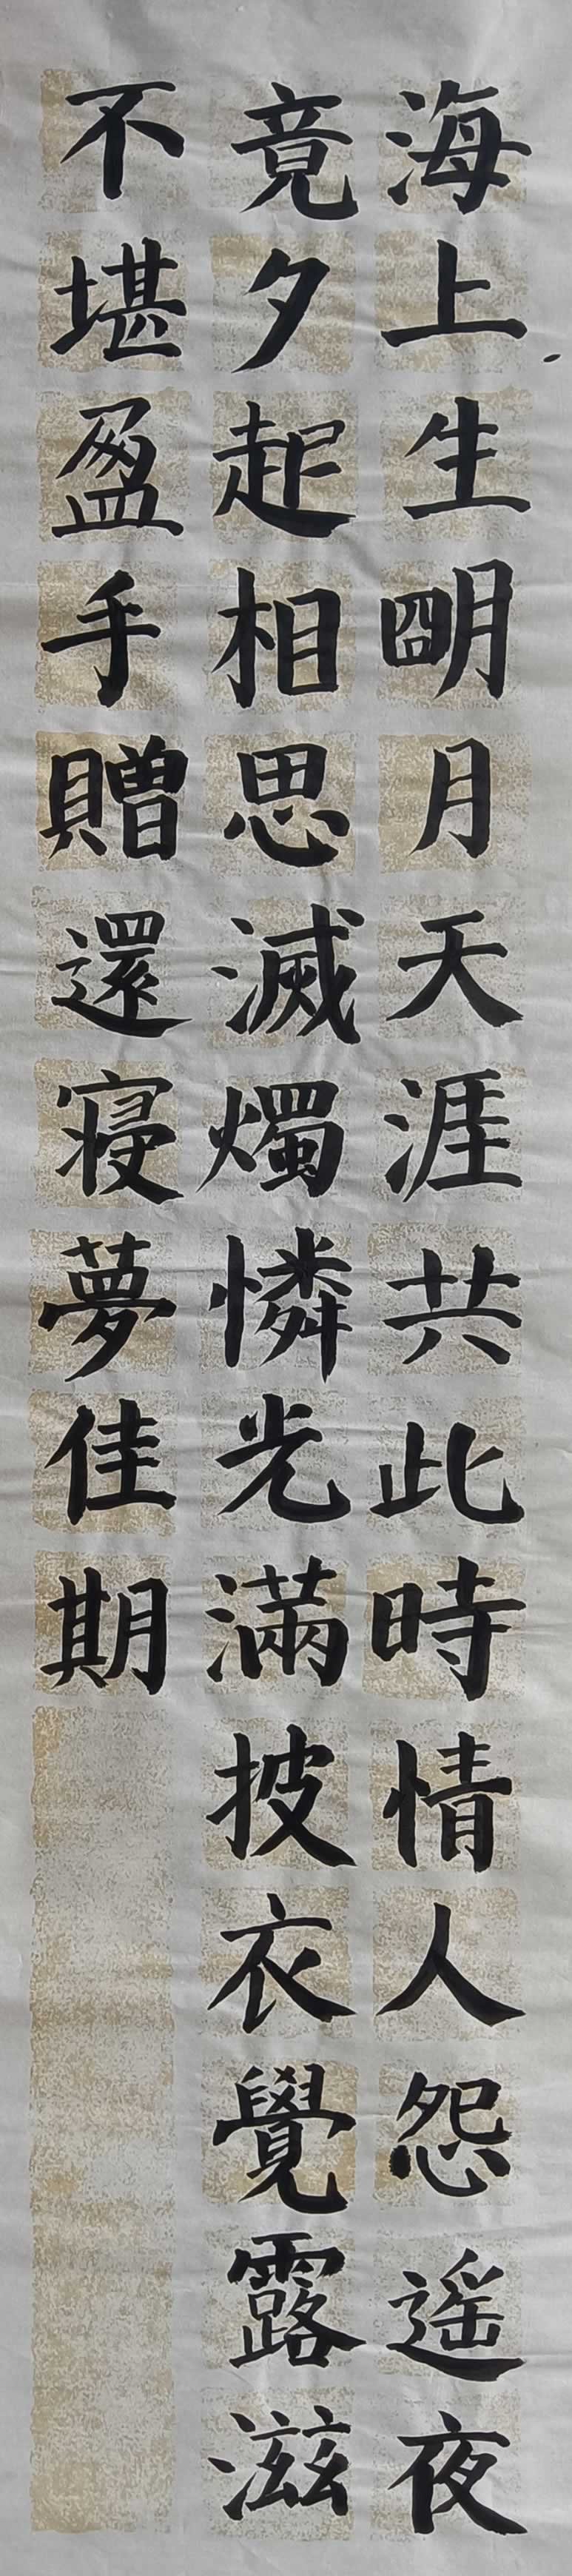 海上生朙月天涯共此時情人怨遥夜
竟夕起相思滅燭憐光滿披衣覺露滋
不堪盈手贈還寝夢佳期